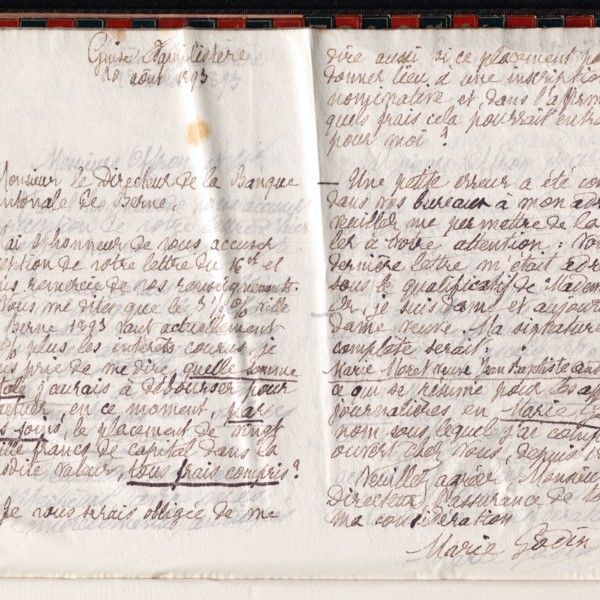 Guise Familistère
20 août 1893
Monsieur le Directeur de la Banque
ntonale de Berne.
ai l'honneur de vous accuser
ception de votre lettre du 16 et
us remercie de vos renseignements.
Vous me dites que le 3 1/2 % ville
Berne 1893 vaut actuellement
% plus les intérêts courus, je
us prie de me dire, quelle somme
tale j'aurais à débourser pour
ectuer, en ce moment, par
s soins, le placement de vingt
ille francs de capital dans la
dite valeur, tous frais compris?
Je vous serais obligée de me
dire aussi si ce placement po
donner lieu à une inscription
nominative et, dans l'affirm
quels frais cela pourrait entra
pour moi?
— Une petite erreur a été com
dans vos bureaux à mon adr
veuillez me permettre de la
ler à votre attention : Vo
dernière lettre m'était adre
sous le qualificatif de Madem
Or, je suis dame et aujourd
dame veuve. Ma signature
complète serait :
Marie Moret veuve Jean Baptiste André
ce qui se résume pour les aff
journalières en Marie G
nom sous lequel j'ai comp
ouvert chez vous, depuis 1
Veuillez agréer, Monsieur
Directeur, l'assurance de to
ma considération
Marie Godin